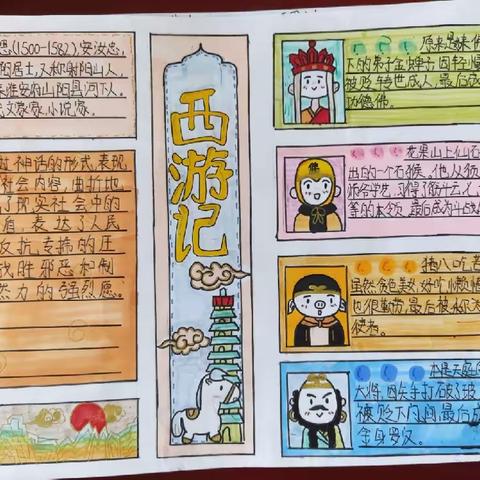 恩(1500-1582)安汝忠,
居士,又称射阳山人,
淮安府山阳县河下人。
文家家,小说家。
神话的形式,表现
社会内容,曲折地
了现实社会中的
盾,表达了人民
反抗专横的压
战胜邪恶和制
然力的强烈愿。
西游记
原来是妹
下的弟子金蝉子因轻慢
被贬转世成人,最后成
功德佛。
花果山上仙石
出的一个石猴,他从须
等的本领,最后成为斗战
猪八
虽然贪色美女好吃懒惰
也很勤劳,最后被
使者。
本是天庭
大将,因失手打破了玻
被贬下凡间,最后成
金身罗汉。